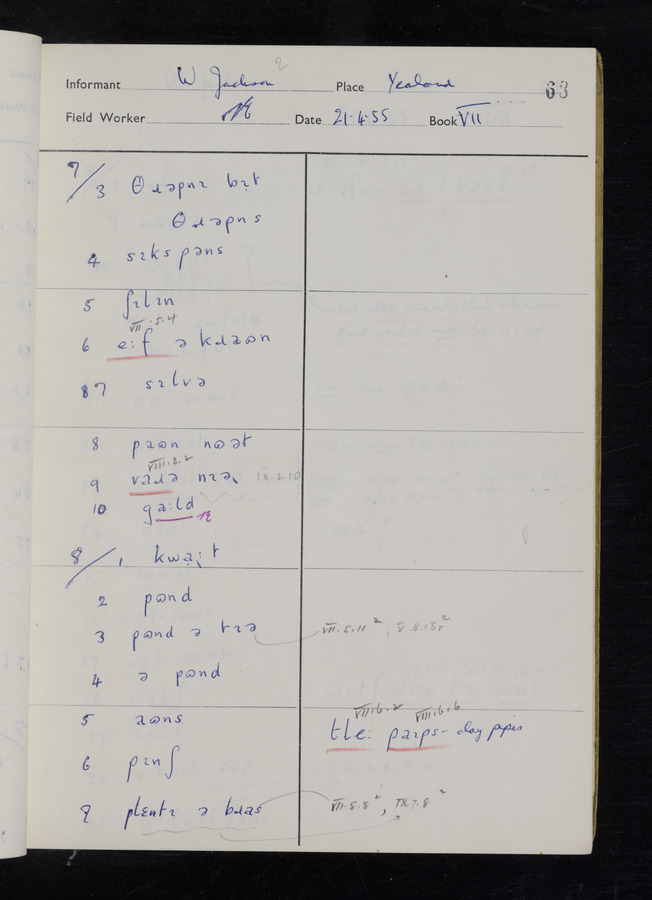 Informant W Jackson 2 Place Yealand 63
Field Worker Date 21.4.55 Book VII
7/3 θɹəpnɪ bɪt
θɹəpns
4 sɪks pəns
5 ʃɪlɪn
VII.5.4
6 e:f ə kɹaʊn
87 sɪlvə
8 paʊn nʊət
VIII.8.2
9 vaɹə nɪə IX.2.10
10 ga:ld
8/1 kwa:t
2 pʊnd
3 pʊnd ə tɪə VII.5.11², V.8.15²
4 ə pʊnd
VII.6.2 VIII.6.6
5 aʊns tle: paɪps - clay pipes
6 pɪnʃ
8 plɛntɪ ə bɹas VII.8.8², IX.7.8²